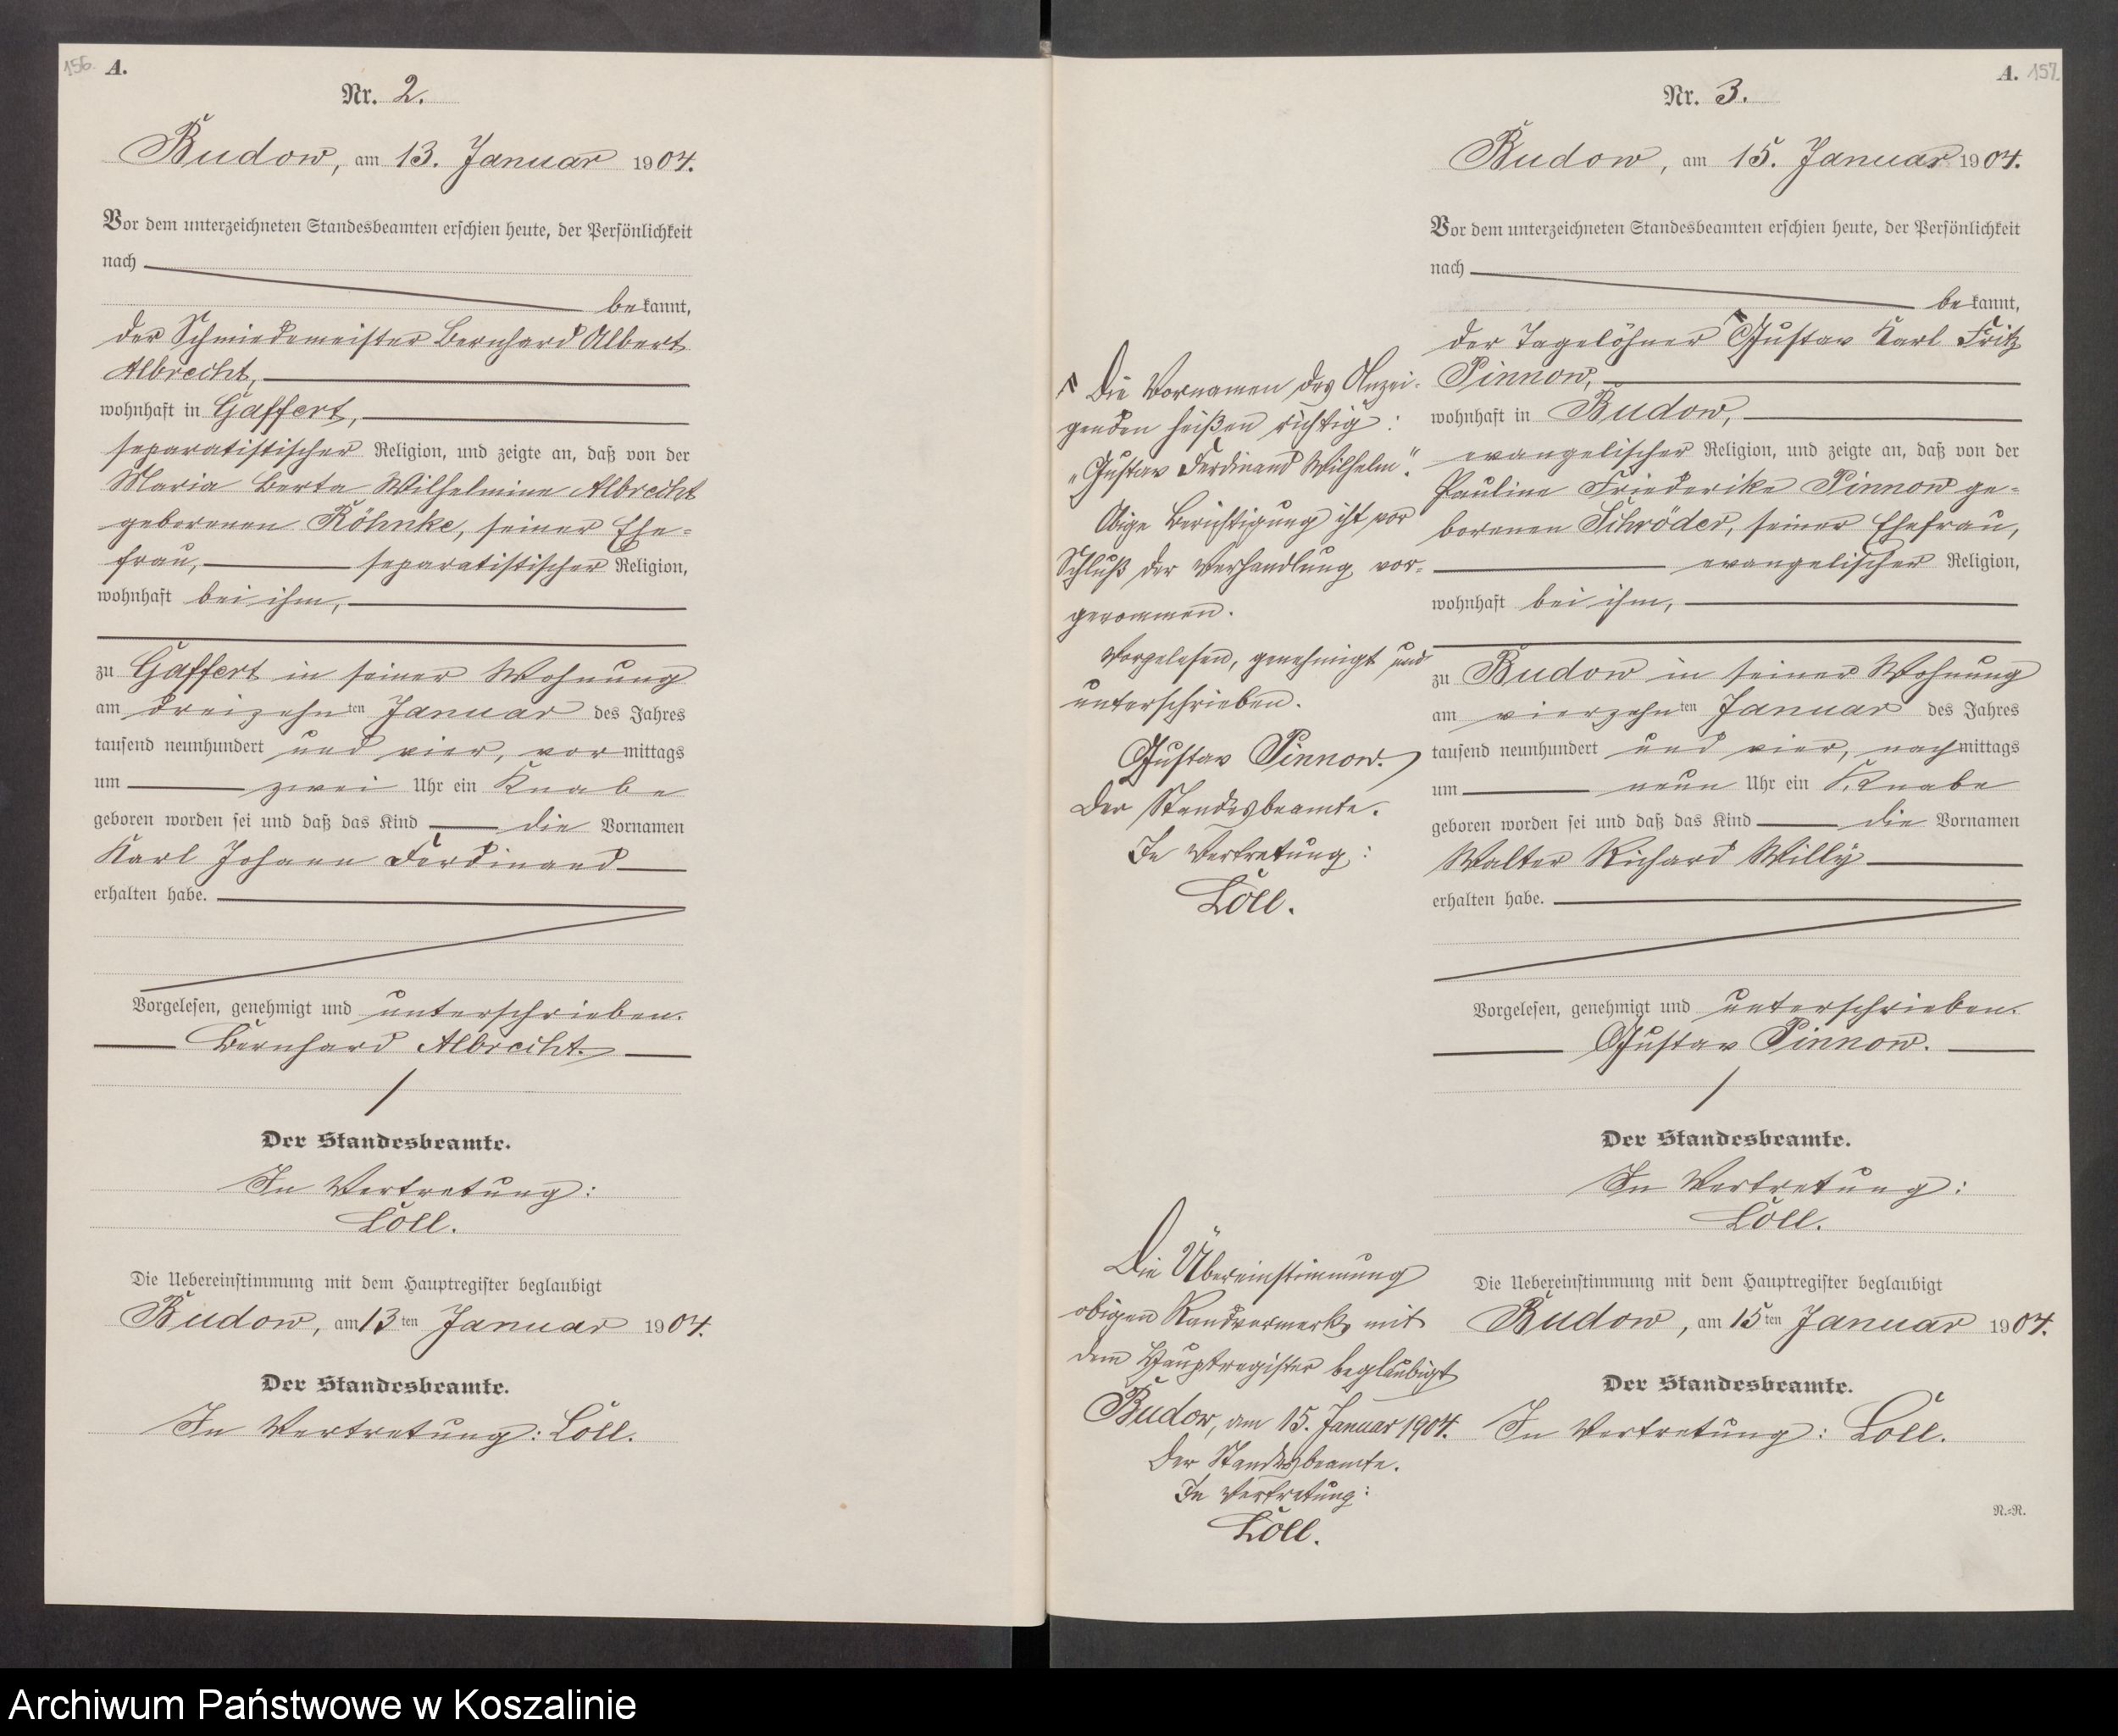 156. A.
Nr. 2.
Budow, am 13. Januar 1904.
Vor dem unterzeichneten Standesbeamten erschien heute, der Persönlichkeit
nach
bekannt,
der Schmiedemeister Bernhard Albert
Albrecht,
wohnhaft in Gaffert,
separatistischer Religion, und zeigte an, daß von der
Maria Berta Wilhelmine Albrecht
geborenen Röhnke, seiner Ehe-
frau, separatistischer Religion,
wohnhaft bei ihm,
zu Gaffert in seiner Wohnung
am dreizehnten Januar des Jahres
tausend neunhundert und vier, vormittags
um zwei Uhr ein Knabe
geboren worden sei und daß das Kind die Vornamen
Karl Johann Ferdinand
erhalten habe.
Vorgelesen, genehmigt und unterschrieben.
Bernhard Albrecht.
Der Standesbeamte.
In Vertretung:
Löll.
Die Uebereinstimmung mit dem Hauptregister beglaubigt
Budow, am 13ten Januar 1904.
Der Standesbeamte.
In Vertretung: Löll.
A. 157.
Nr. 3.
Budow, am 15. Januar 1904.
Vor dem unterzeichneten Standesbeamten erschien heute, der Persönlichkeit
nach
bekannt,
der Tagelöhner Gustav Karl Fritz
Pinnow,
wohnhaft in Budow,
evangelischer Religion, und zeigte an, daß von der
Pauline Friederike Pinnow ge-
borenen Schröder, seiner Ehefrau,
evangelischer Religion,
wohnhaft bei ihm,
zu Budow in seiner Wohnung
am vierzehnten Januar des Jahres
tausend neunhundert und vier, nachmittags
um neun Uhr ein Knabe
geboren worden sei und daß das Kind die Vornamen
Walter Richard Willy
erhalten habe.
Vorgelesen, genehmigt und unterschrieben.
Gustav Pinnow.
Der Standesbeamte.
In Vertretung:
Löll.
Die Uebereinstimmung mit dem Hauptregister beglaubigt
Budow, am 15ten Januar 1904.
Der Standesbeamte.
In Vertretung: Löll.
N.=R.
Die Vornamen des Anzei-
genden heißen richtig:
„Gustav Ferdinand Wilhelm“.
Obige Berichtigung ist vor
Schluß der Verhandlung vor-
genommen.
Vorgelesen, genehmigt und
unterschrieben.
Gustav Pinnow.
Der Standesbeamte.
In Vertretung:
Löll.
Die Übereinstimmung
obigen Randvermerks mit
dem Hauptregister beglaubigt
Budow, am 15. Januar 1904.
Der Standesbeamte.
In Vertretung:
Löll.
Archiwum Państwowe w Koszalinie